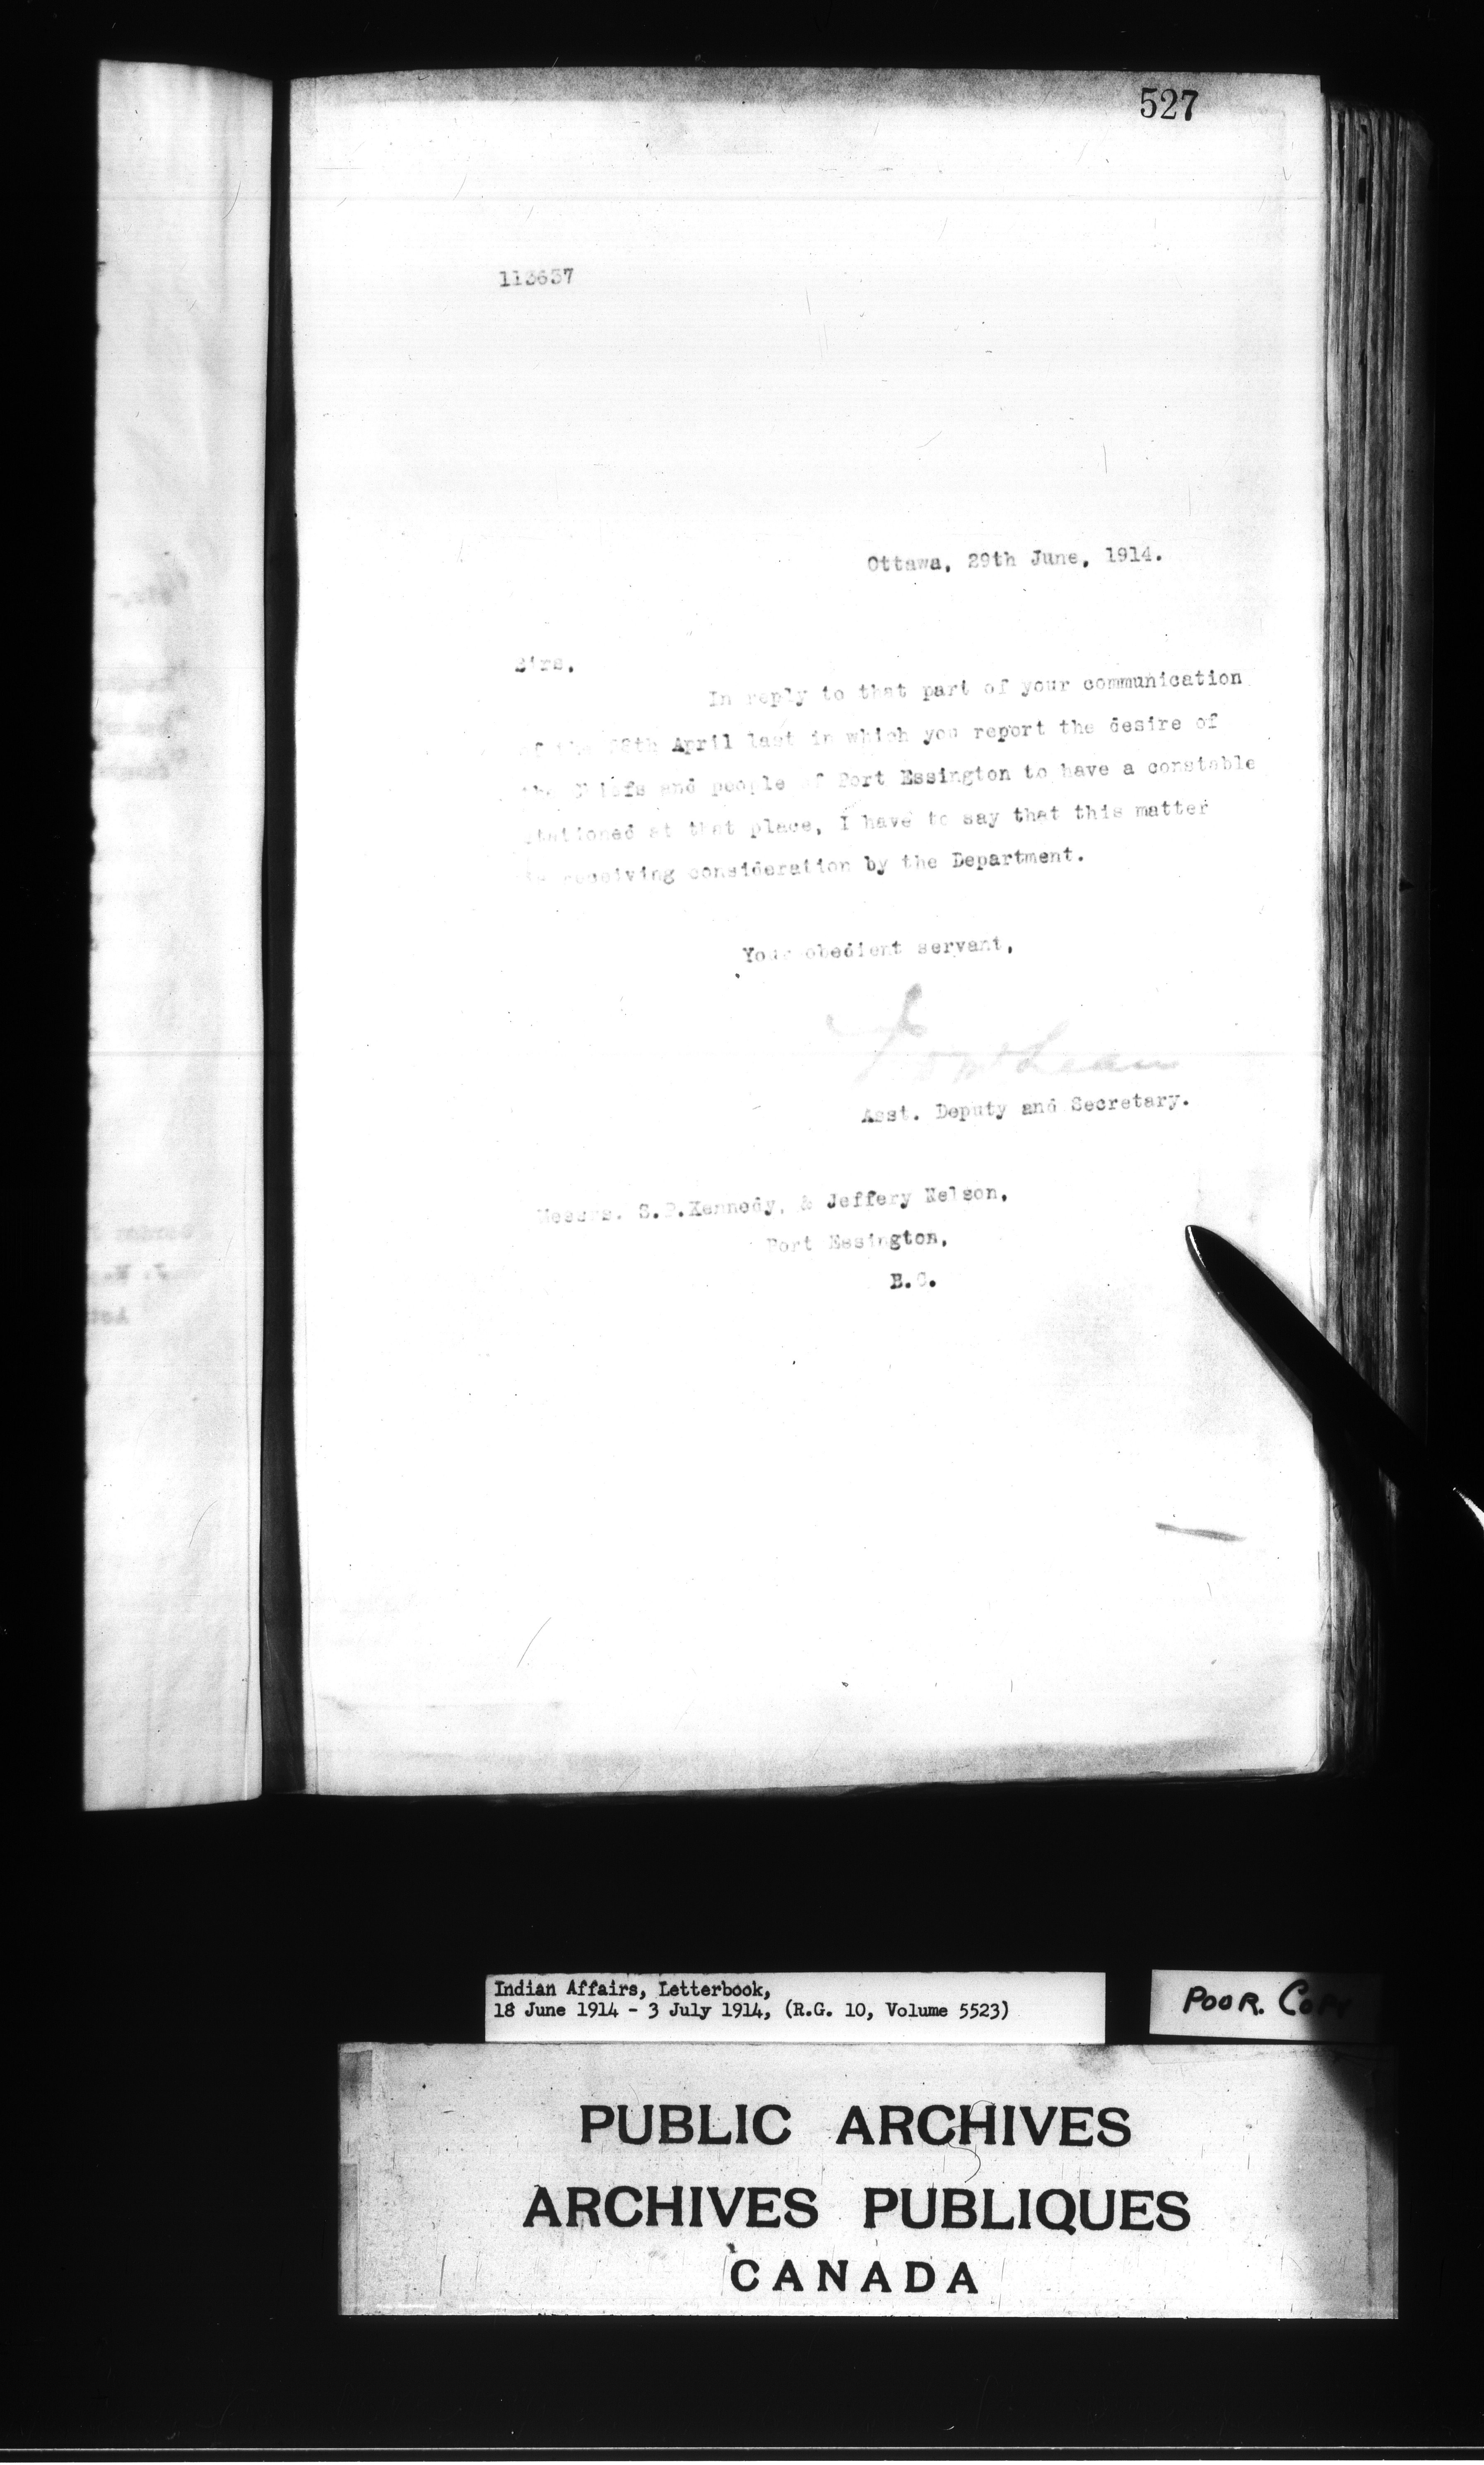 527
113637
Ottawa, 29th June, 1914.
Sirs,
In reply to that part of your communication
of the 28th April last in which you report the desire of
the Chiefs and people of Port Essington to have a constable
stationed at that place, I have to say that this matter
is receiving consideration by the Department.
Your obedient servant,
Asst. Deputy and Secretary.
Messrs. S.P.Kennedy, & Jeffery Nelson,
Port Essington,
B.C.
Indian Affairs, Letterbook,
18 June 1914 - 3 July 1914, (R.G. 10, Volume 5523)
POOR. COPY
PUBLIC ARCHIVES
ARCHIVES PUBLIQUES
CANADA